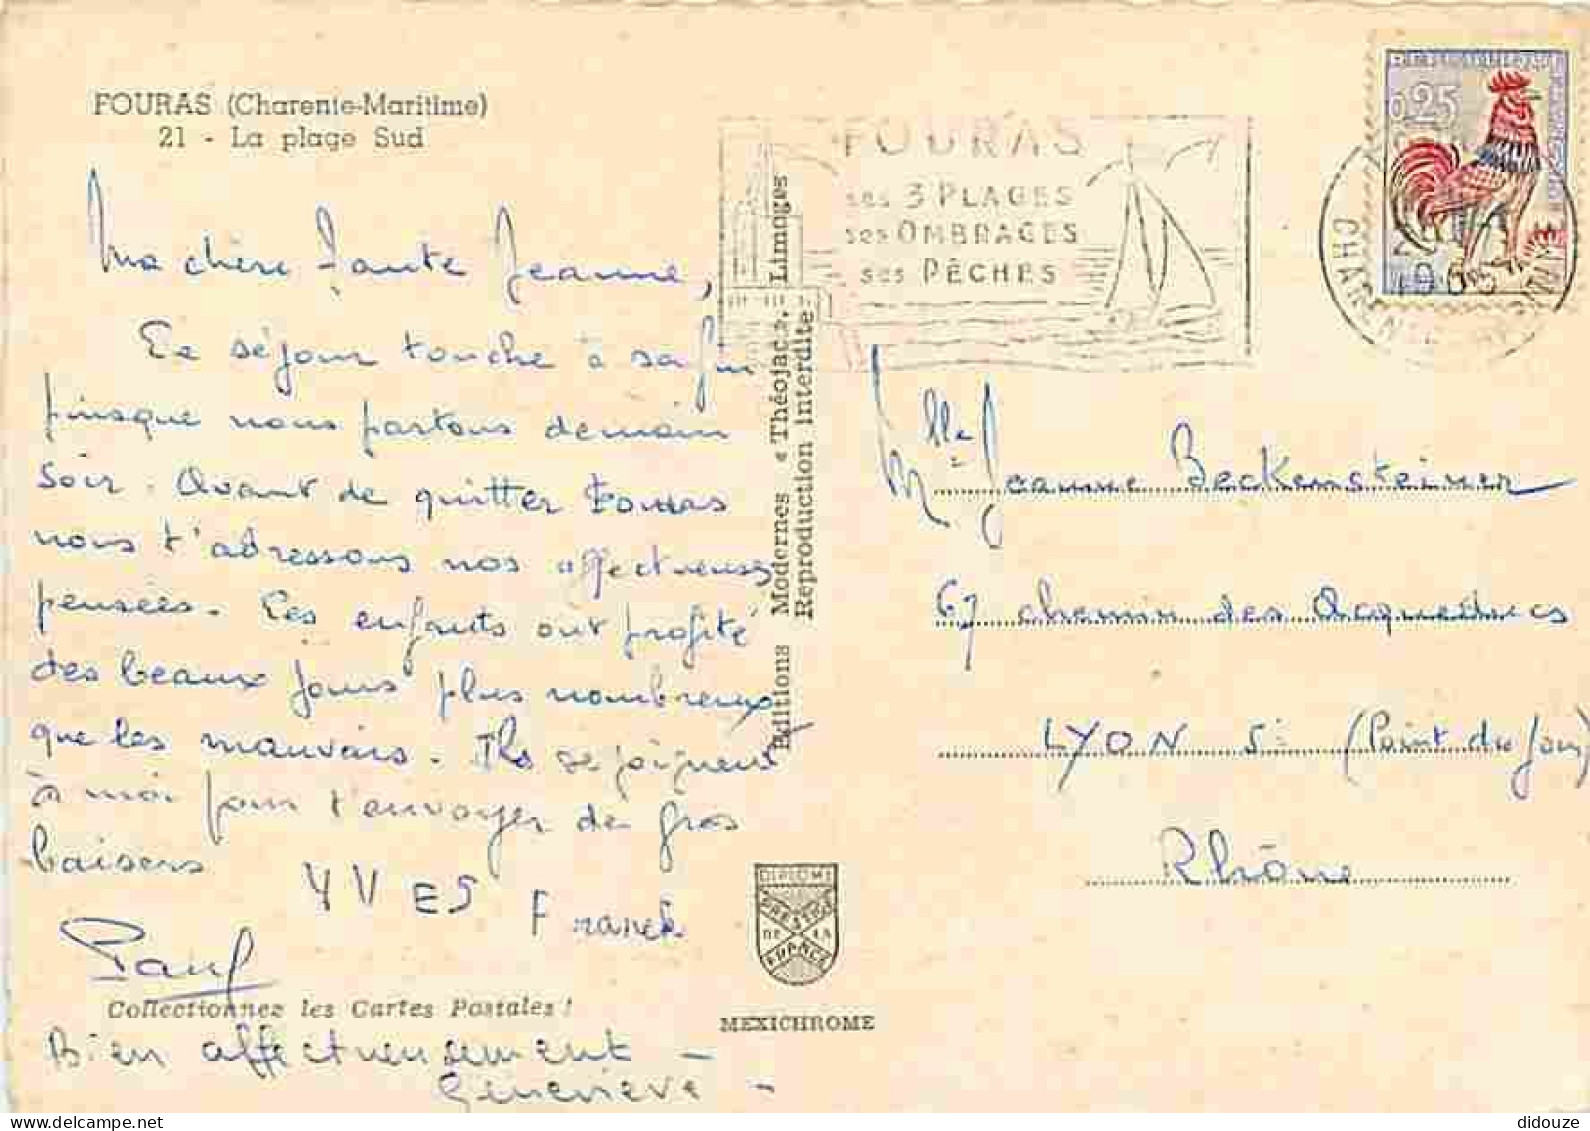 FOURAS (Charente-Maritime)
21 - La plage Sud
Ma chère Tante Jeanne,
Ce séjour touche à sa fin
puisque nous partons demain
soir. Avant de quitter Fouras
nous t'adressons nos affectueuses
pensées. Les enfants ont profité
des beaux jours plus nombreux
que les mauvais. Ils se joignent
à moi pour t'envoyer de gros
baisers
YVES Franck
Paul
Collectionnez les Cartes Postales !
Bien affectueusement -
Geneviève -
Editions Modernes « Théojac », Limoges
Reproduction Interdite
DIPLOME
PRESTIGE
DE LA
FRANCE
MEXICHROME
FOURAS
ses 3 PLAGES
ses OMBRAGES
ses PÊCHES
0,25
1965
CHARENTE MARITIME
Mlle Jeanne Beckensteiner
67 chemin des Acqueducs
LYON 5e (Point du Jour)
Rhône
didouze